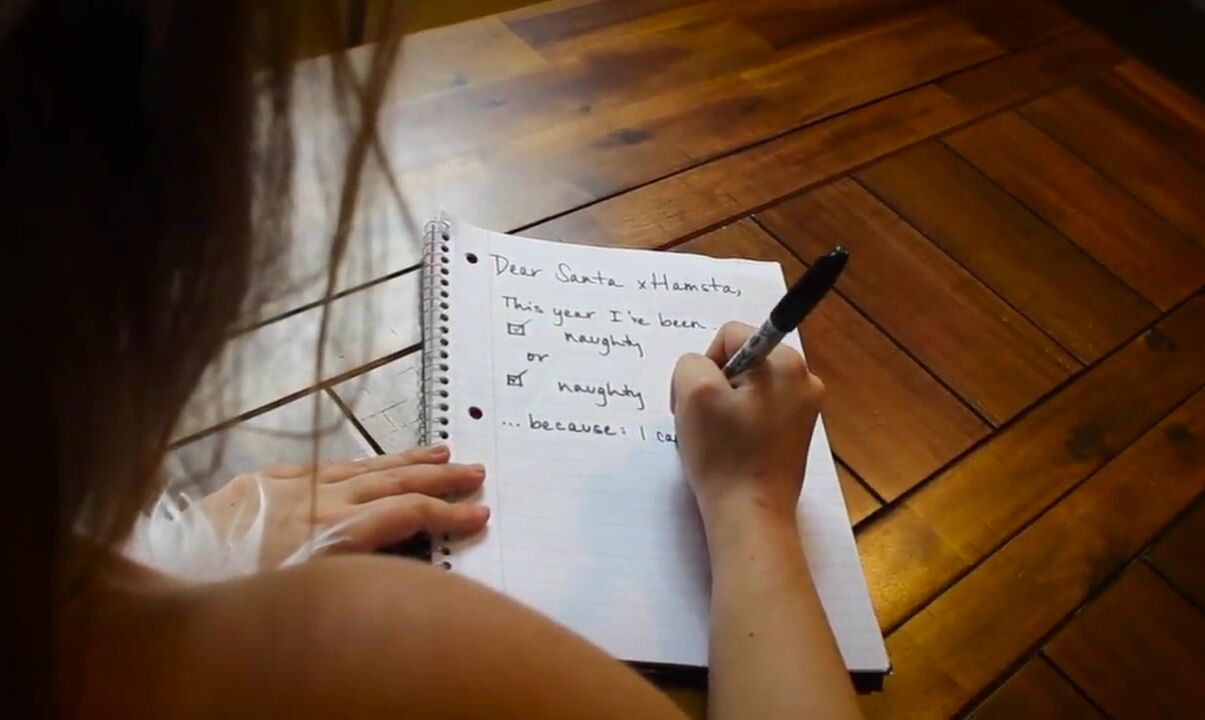 Dear Santa xHamsta,
This year I've been..
☑ naughty
or
☑ naughty
... because: I ca